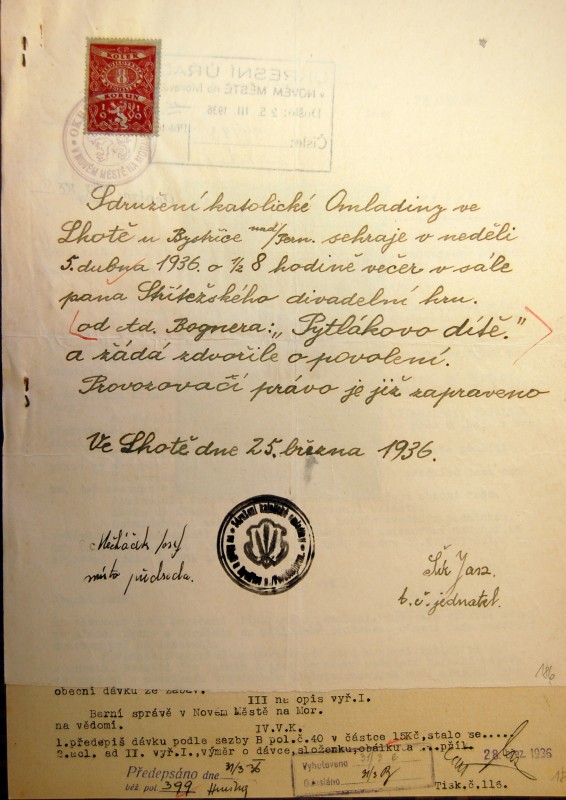 KOLEK
8
KORUN
NOVÉM MĚSTĚ NA
Číslo:
V NOVÉM MĚSTĚ NA MOR
Sdružení katolické Omladiny ve
Lhotě u Bystřice nad/Pern. sehraje v neděli
5. dubna 1936. o ½ 8 hodině večer v sále
pana Střítežského divadelní hru.
od Ad. Bognera: „Pytlákovo dítě."
a žádá zdvořile o povolení.
Provozovací právo je již zapraveno
Ve Lhotě dne 25. března 1936.
Sdružení katolické omladiny
místo předseda.
t. č. jednatel.
186
obecní dávku ze zábav.
III na opis vyř.I.
Berní správě v Novém Městě na Mor.
na vědomí.
IV.V.K.
1.předepiš dávku podle sazby B pol.č.40 v částce 15Kč,stalo se.....
2.scl. ad II. vyř.I.,výměr o dávce,složenku,obálku a ... příl.
Předepsáno dne 31/3 36
bež pol. 399
Vyhotoveno
Odesláno 31/3
1936
Tisk.č.116.